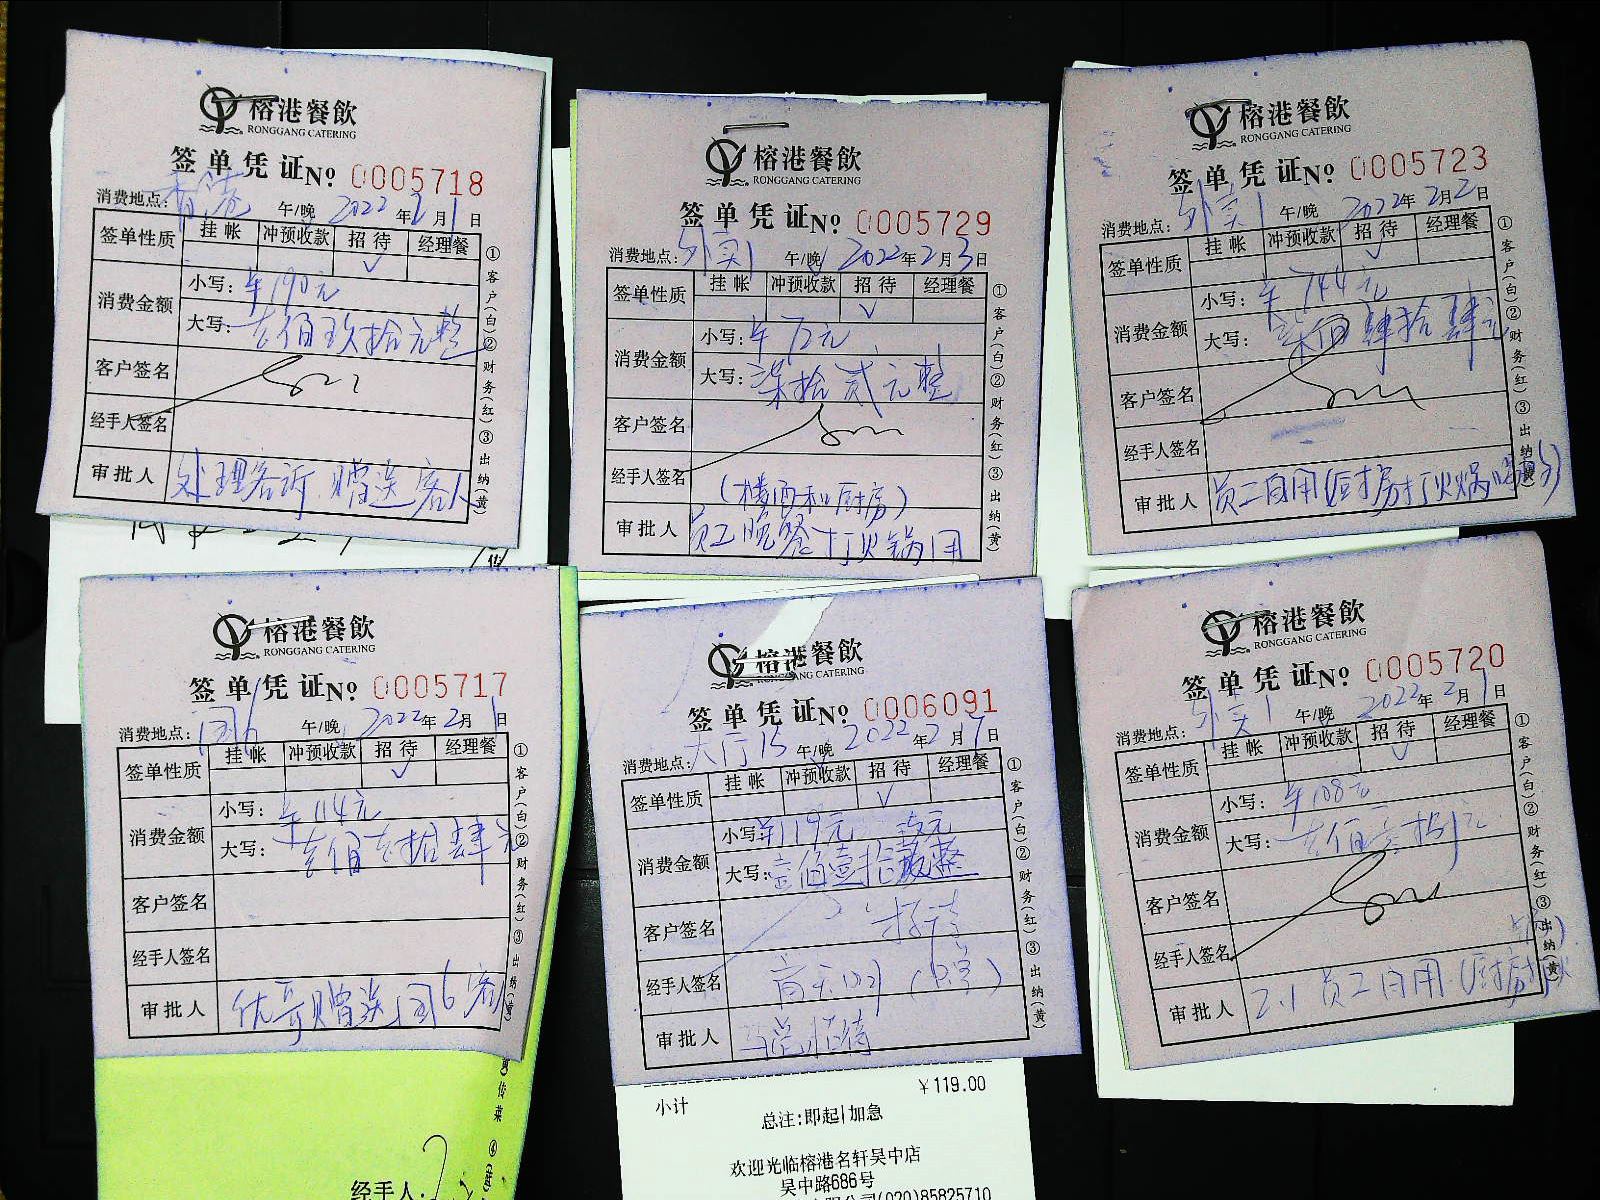 榕港餐飲
RONGGANG CATERING
签单凭证№ 0005718
消费地点: 香港 午/晚 2022年2月1日
签单性质 挂帐 冲预收款 招待 经理餐
✓
消费金额 小写: ¥190元
大写: 壹佰玖拾元整
客户签名
经手人签名
审批人 处理客诉 赠送客人
①客户(白)②财务(红)③出纳(黄)
榕港餐飲
RONGGANG CATERING
签单凭证№ 0005729
消费地点: 外卖1 午/晚✓ 2022年2月3日
签单性质 挂帐 冲预收款 招待 经理餐
✓
消费金额 小写: ¥72元
大写: 柒拾贰元整
客户签名
经手人签名 (楼面和厨房)
审批人 员工晚餐打火锅用
①客户(白)②财务(红)③出纳(黄)
榕港餐飲
RONGGANG CATERING
签单凭证№ 0005723
消费地点: 外卖1 午/晚 2022年2月2日
签单性质 挂帐 冲预收款 招待 经理餐
✓
消费金额 小写: ¥744元
大写: 柒佰肆拾肆元
客户签名
经手人签名
审批人 员工自用(厨房打火锅
①客户(白)②财务(红)③出纳(黄)
榕港餐飲
RONGGANG CATERING
签单凭证№ 0005717
消费地点: 国6 午/晚 2022年2月1日
签单性质 挂帐 冲预收款 招待 经理餐
✓
消费金额 小写: ¥114元
大写: 壹佰壹拾肆元
客户签名
经手人签名
审批人 优哥赠送国6客人
①客户(白)②财务(红)③出纳(黄)
传菜 ④
经手人:
榕港餐飲
RONGGANG CATERING
签单凭证№ 0006091
消费地点: 大厅15 午/晚✓ 2022年2月17日
签单性质 挂帐 冲预收款 招待 经理餐
✓
消费金额 小写: ¥119元
大写: 壹佰壹拾玖元整
客户签名 招待
经手人签名
审批人
①客户(白)②财务(红)③出纳(黄)
¥119.00
小计
总注:即起|加急
欢迎光临榕港名轩吴中店
吴中路686号
有限公司(020)85825710
榕港餐飲
RONGGANG CATERING
签单凭证№ 0005720
消费地点: 外卖1 午/晚 2022年2月1日
签单性质 挂帐 冲预收款 招待 经理餐
✓
消费金额 小写: ¥108元
大写: 壹佰零捌元
客户签名
经手人签名
审批人 2.1 员工自用(厨房
①客户(白)②财务(红)③出纳(黄)